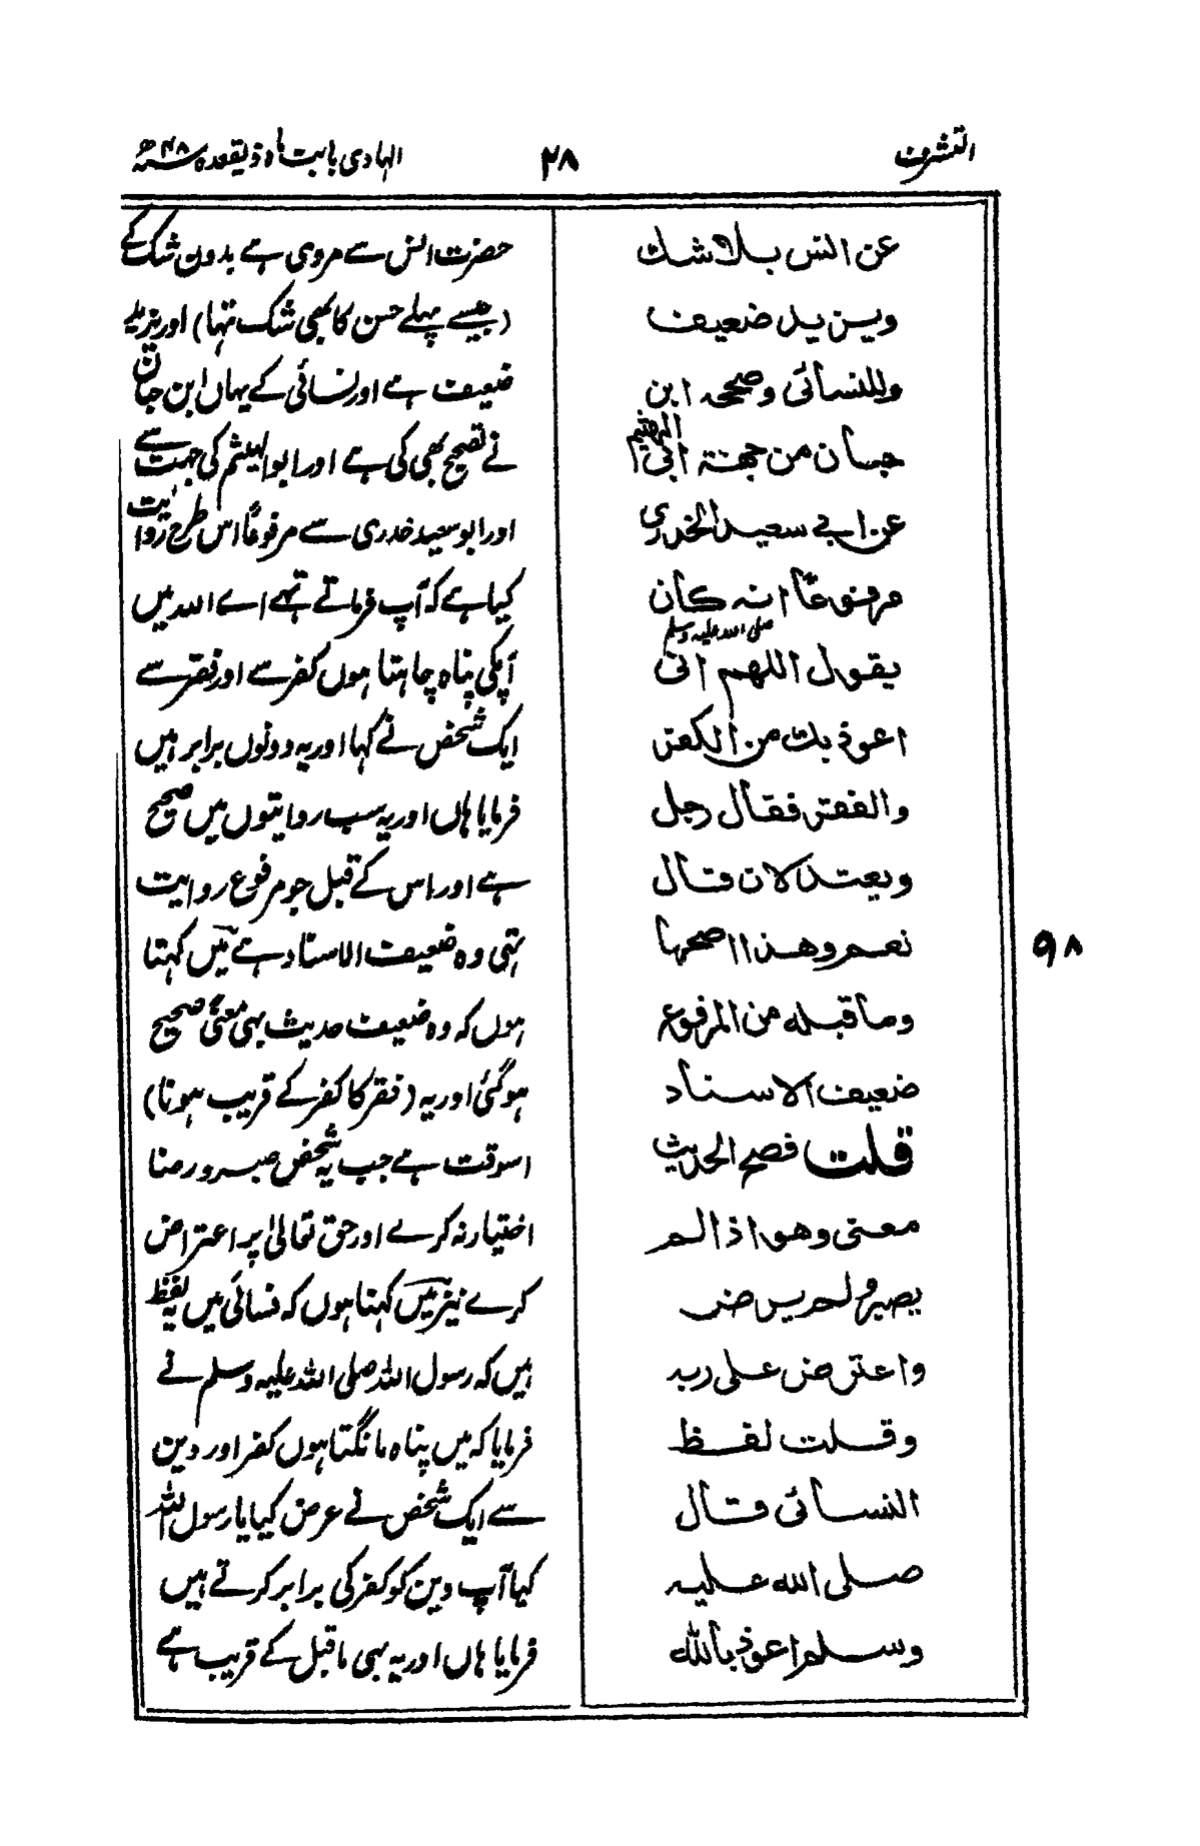 التشرف
۲۸
الہادی بابت ماہ ذیقعدہ سنہ ۴۸ھ
عن انس بلا شك
ويزيد ضعيف
وللنسائى وصححه ابن
حبان من جهة ابى الهيثم
عن ابى سعيد الخدرى
مرفوعاً انه كان صلى الله عليه وسلم
يقول اللهم انى
اعوذ بك من الكفر
والفقر فقال رجل
ويعتدلان قال
نعم وهذا اصحها
وما قبله من المرفوع
ضعيف الاسناد
قلت فصح الحديث
معنى وهو اذا لم
يصبر ولم يرض
واعترض على ربه
وقلت لفظ
النسائى قال
صلى الله عليه
وسلم اعوذ بالله
حضرت انس سے مروی ہے بدون شک کے
(جیسے پہلے حسن کا بھی شک تہا) اور یزید
ضعیف ہے اور نسائی کے یہاں ابن حبان
نے تصحیح بھی کی ہے اور ابو الہیثم کی جہت سے
اور ابو سعید خدری سے مرفوعاً اس طرح روایت
کیا ہے کہ آپ فرماتے تہے اے اللہ میں
آپکی پناہ چاہتا ہوں کفر سے اور فقر سے
ایک شخص نے کہا اور یہ دونوں برابر ہیں
فرمایا ہاں اور یہ سب روایتوں میں صحیح
ہے اور اس کے قبل جو مرفوع روایت
تہی وہ ضعیف الاسناد ہے میں کہتا
ہوں کہ وہ ضعیف حدیث بہی معنًی صحیح
ہوگئی اور یہ (فقر کا کفر کے قریب ہونا)
اسوقت ہے جب یہ شخص صبر و رضا
اختیار نہ کرے اور حق تعالیٰ پر اعتراض
کرے نیز میں کہتا ہوں کہ نسائی میں یہ لفظ
ہیں کہ رسول اللہ صلی اللہ علیہ وسلم نے
فرمایا کہ میں پناہ مانگتا ہوں کفر اور دین
سے ایک شخص نے عرض کیا یا رسول اللہ
کیا آپ دین کو کفر کی برابر کرتے ہیں
فرمایا ہاں اور یہ بہی ماقبل کے قریب ہے
۹۸